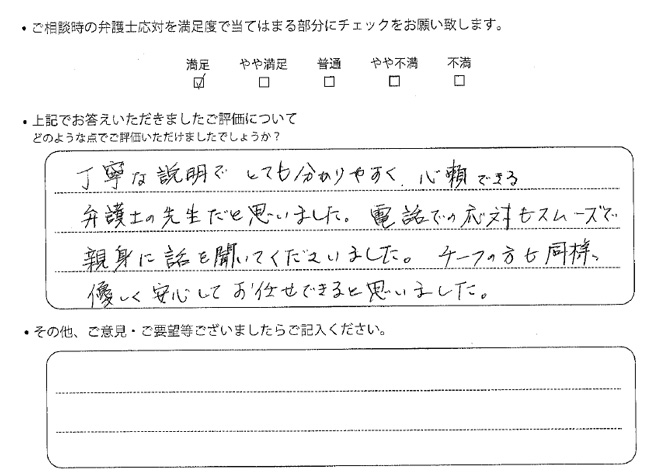 ・ご相談時の弁護士応対を満足度で当てはまる部分にチェックをお願い致します。
満足 やや満足 普通 やや不満 不満
・上記でお答えいただきましたご評価について
どのような点でご評価いただけましたでしょうか？
丁寧な説明で とても分かりやすく、心頼できる
弁護士の先生だと思いました。電話での応対もスムーズで
親身に話を聞いてくださいました。チーフの方も同様、
優しく安心してお任せできると思いました。
・その他、ご意見・ご要望等ございましたらご記入ください。